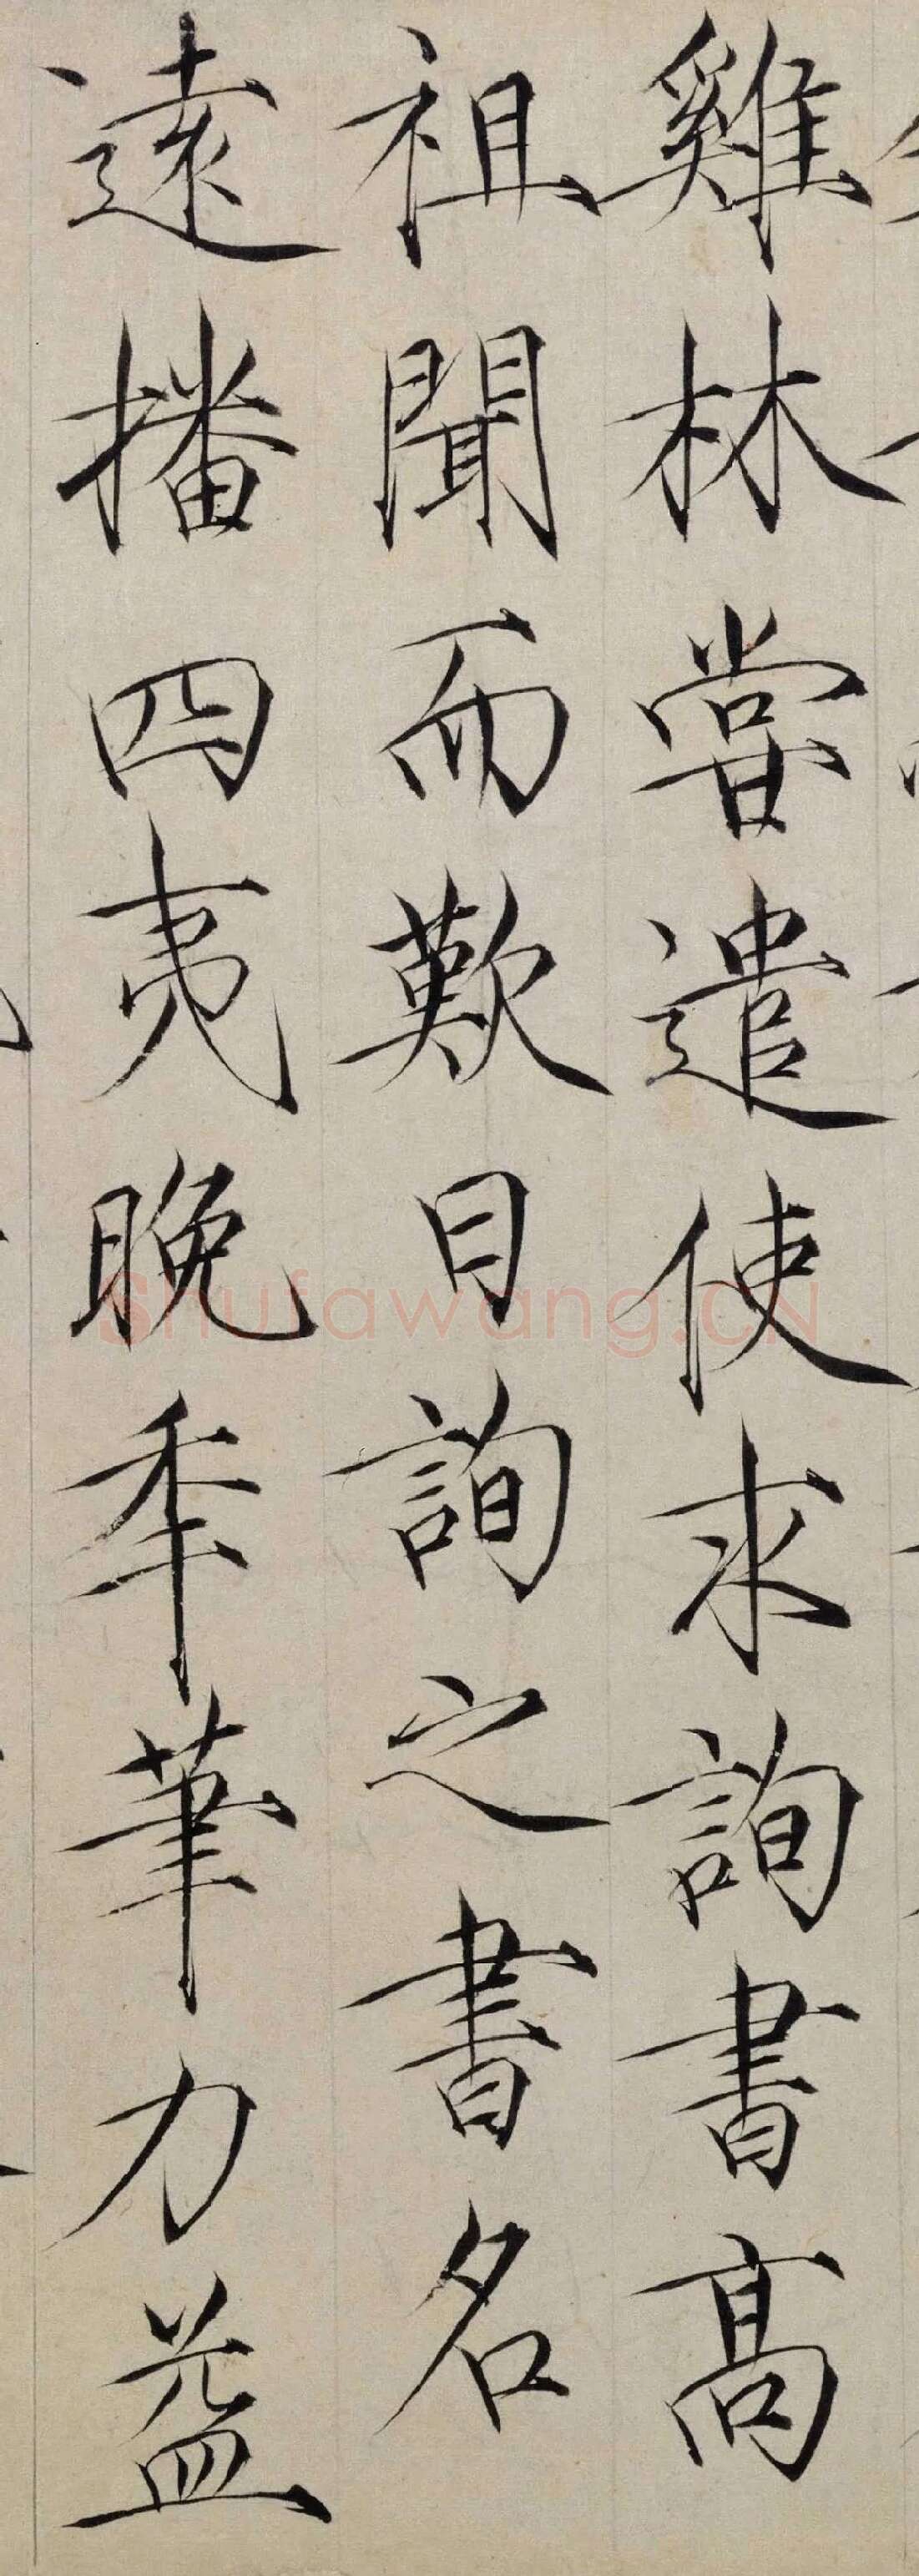 雞林嘗遣使求詢書高
祖聞而歎曰詢之書名
遠播四夷晚年筆力益
shufawang.CN